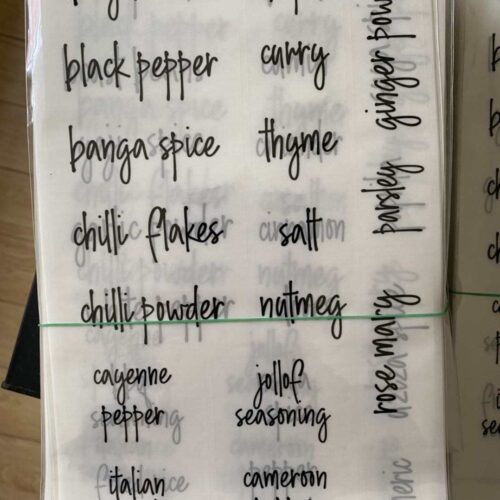 black pepper
curry
banga spice
thyme
chilli flakes
salt
chilli powder
nutmeg
cayenne
pepper
jollof
seasoning
italian
cameroon
ginger pow
parsley
rose mary